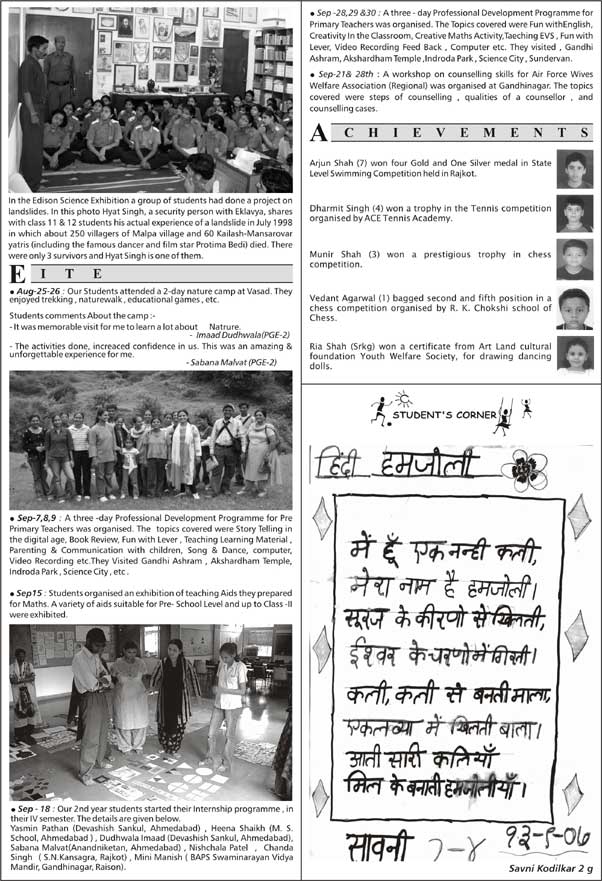 In the Edison Science Exhibition a group of students had done a project on
landslides. In this photo Hyat Singh, a security person with Eklavya, shares
with class 11 & 12 students his actual experience of a landslide in July 1998
in which about 250 villagers of Malpa village and 60 Kailash-Mansarovar
yatris (including the famous dancer and film star Protima Bedi) died. There
were only 3 survivors and Hyat Singh is one of them.
E I T E
• Aug-25-26 : Our Students attended a 2-day nature camp at Vasad. They
enjoyed trekking , naturewalk , educational games , etc.
Students comments About the camp :-
- It was memorable visit for me to learn a lot about Natrure.
- Imaad Dudhwala(PGE-2)
- The activities done, increaced confidence in us. This was an amazing &
unforgettable experience for me.
- Sabana Malvat (PGE-2)
• Sep-7,8,9 : A three -day Professional Development Programme for Pre
Primary Teachers was organised. The topics covered were Story Telling in
the digital age, Book Review, Fun with Lever , Teaching Learning Material ,
Parenting & Communication with children, Song & Dance, computer,
Video Recording etc.They Visited Gandhi Ashram , Akshardham Temple,
Indroda Park , Science City , etc .
• Sep15 : Students organised an exhibition of teaching Aids they prepared
for Maths. A variety of aids suitable for Pre- School Level and up to Class -II
were exhibited.
• Sep - 18 : Our 2nd year students started their Internship programme , in
their IV semester. The details are given below.
Yasmin Pathan (Devashish Sankul, Ahmedabad) , Heena Shaikh (M. S.
School, Ahmedabad ) , Dudhwala Imaad (Devashish Sankul, Ahmedabad),
Sabana Malvat(Anandniketan, Ahmedabad) , Nishchala Patel , Chanda
Singh ( S.N.Kansagra, Rajkot) , Mini Manish ( BAPS Swaminarayan Vidya
Mandir, Gandhinagar, Raison).
• Sep -28,29 &30 : A three - day Professional Development Programme for
Primary Teachers was organised. The Topics covered were Fun withEnglish,
Creativity In the Classroom, Creative Maths Activity,Taeching EVS , Fun with
Lever, Video Recording Feed Back , Computer etc. They visited , Gandhi
Ashram, Akshardham Temple ,Indroda Park , Science City , Sundervan.
• Sep-21& 28th : A workshop on counselling skills for Air Force Wives
Welfare Association (Regional) was organised at Gandhinagar. The topics
covered were steps of counselling , qualities of a counsellor , and
counselling cases.
A C H I E V E M E N T S
Arjun Shah (7) won four Gold and One Silver medal in State
Level Swimming Competition held in Rajkot.
Dharmit Singh (4) won a trophy in the Tennis competition
organised by ACE Tennis Academy.
Munir Shah (3) won a prestigious trophy in chess
competition.
Vedant Agarwal (1) bagged second and fifth position in a
chess competition organised by R. K. Chokshi school of
Chess.
Ria Shah (Srkg) won a certificate from Art Land cultural
foundation Youth Welfare Society, for drawing dancing
dolls.
STUDENT'S CORNER
हिंदी हमजोली
में हूँ एक नन्ही कली,
मेरा नाम है हमजोली।
सूरज के कीरणो से खिलती,
ईश्वर के चरणो में गिरती।
कली, कली से बनती माला,
एकलव्या में खिलती बाला।
आती सारी कलियाँ
मिल के बनाती हमजोलीयाँ।
सावनी २-४ १३-९-०७
Savni Kodilkar 2 g